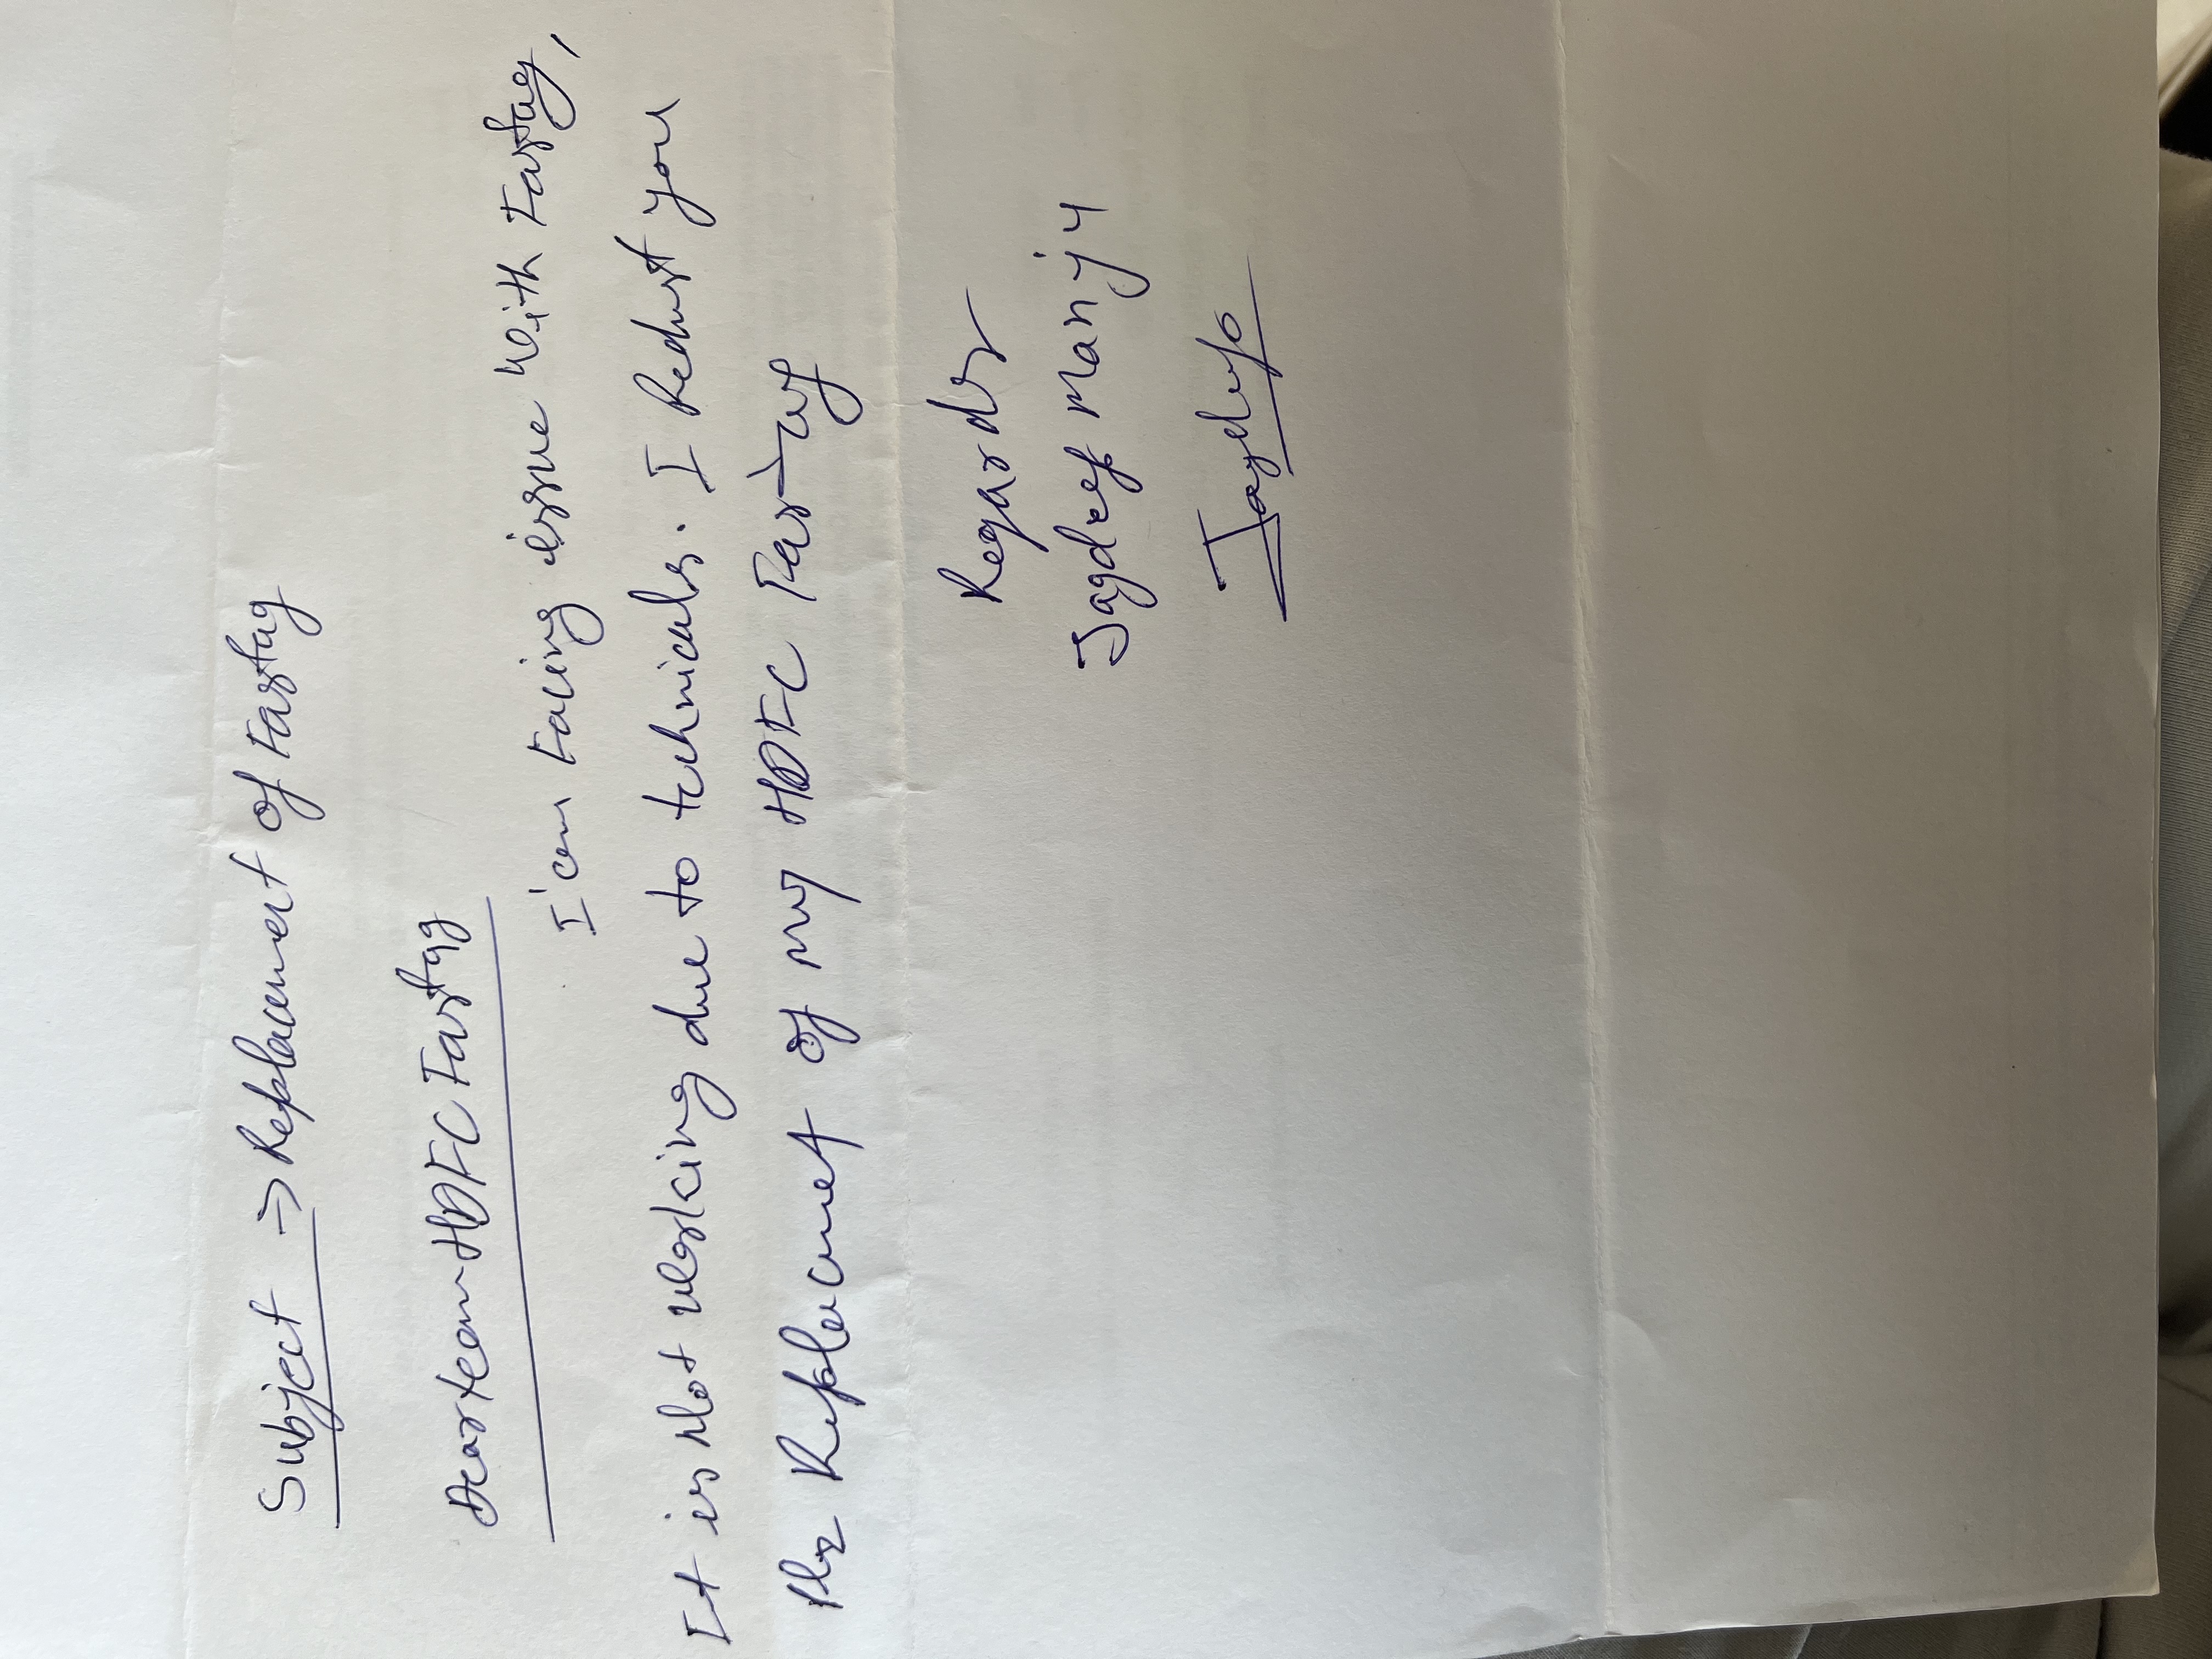 Subject → Replacement of Fastag
Dear team HDFC Fastag
I am Facing issue with Fastag,
It is Not working due to technicals. I Request you
Plz Replacment of my HDFC Fastag
Regards
Jagdeep Manju
Jagdeep